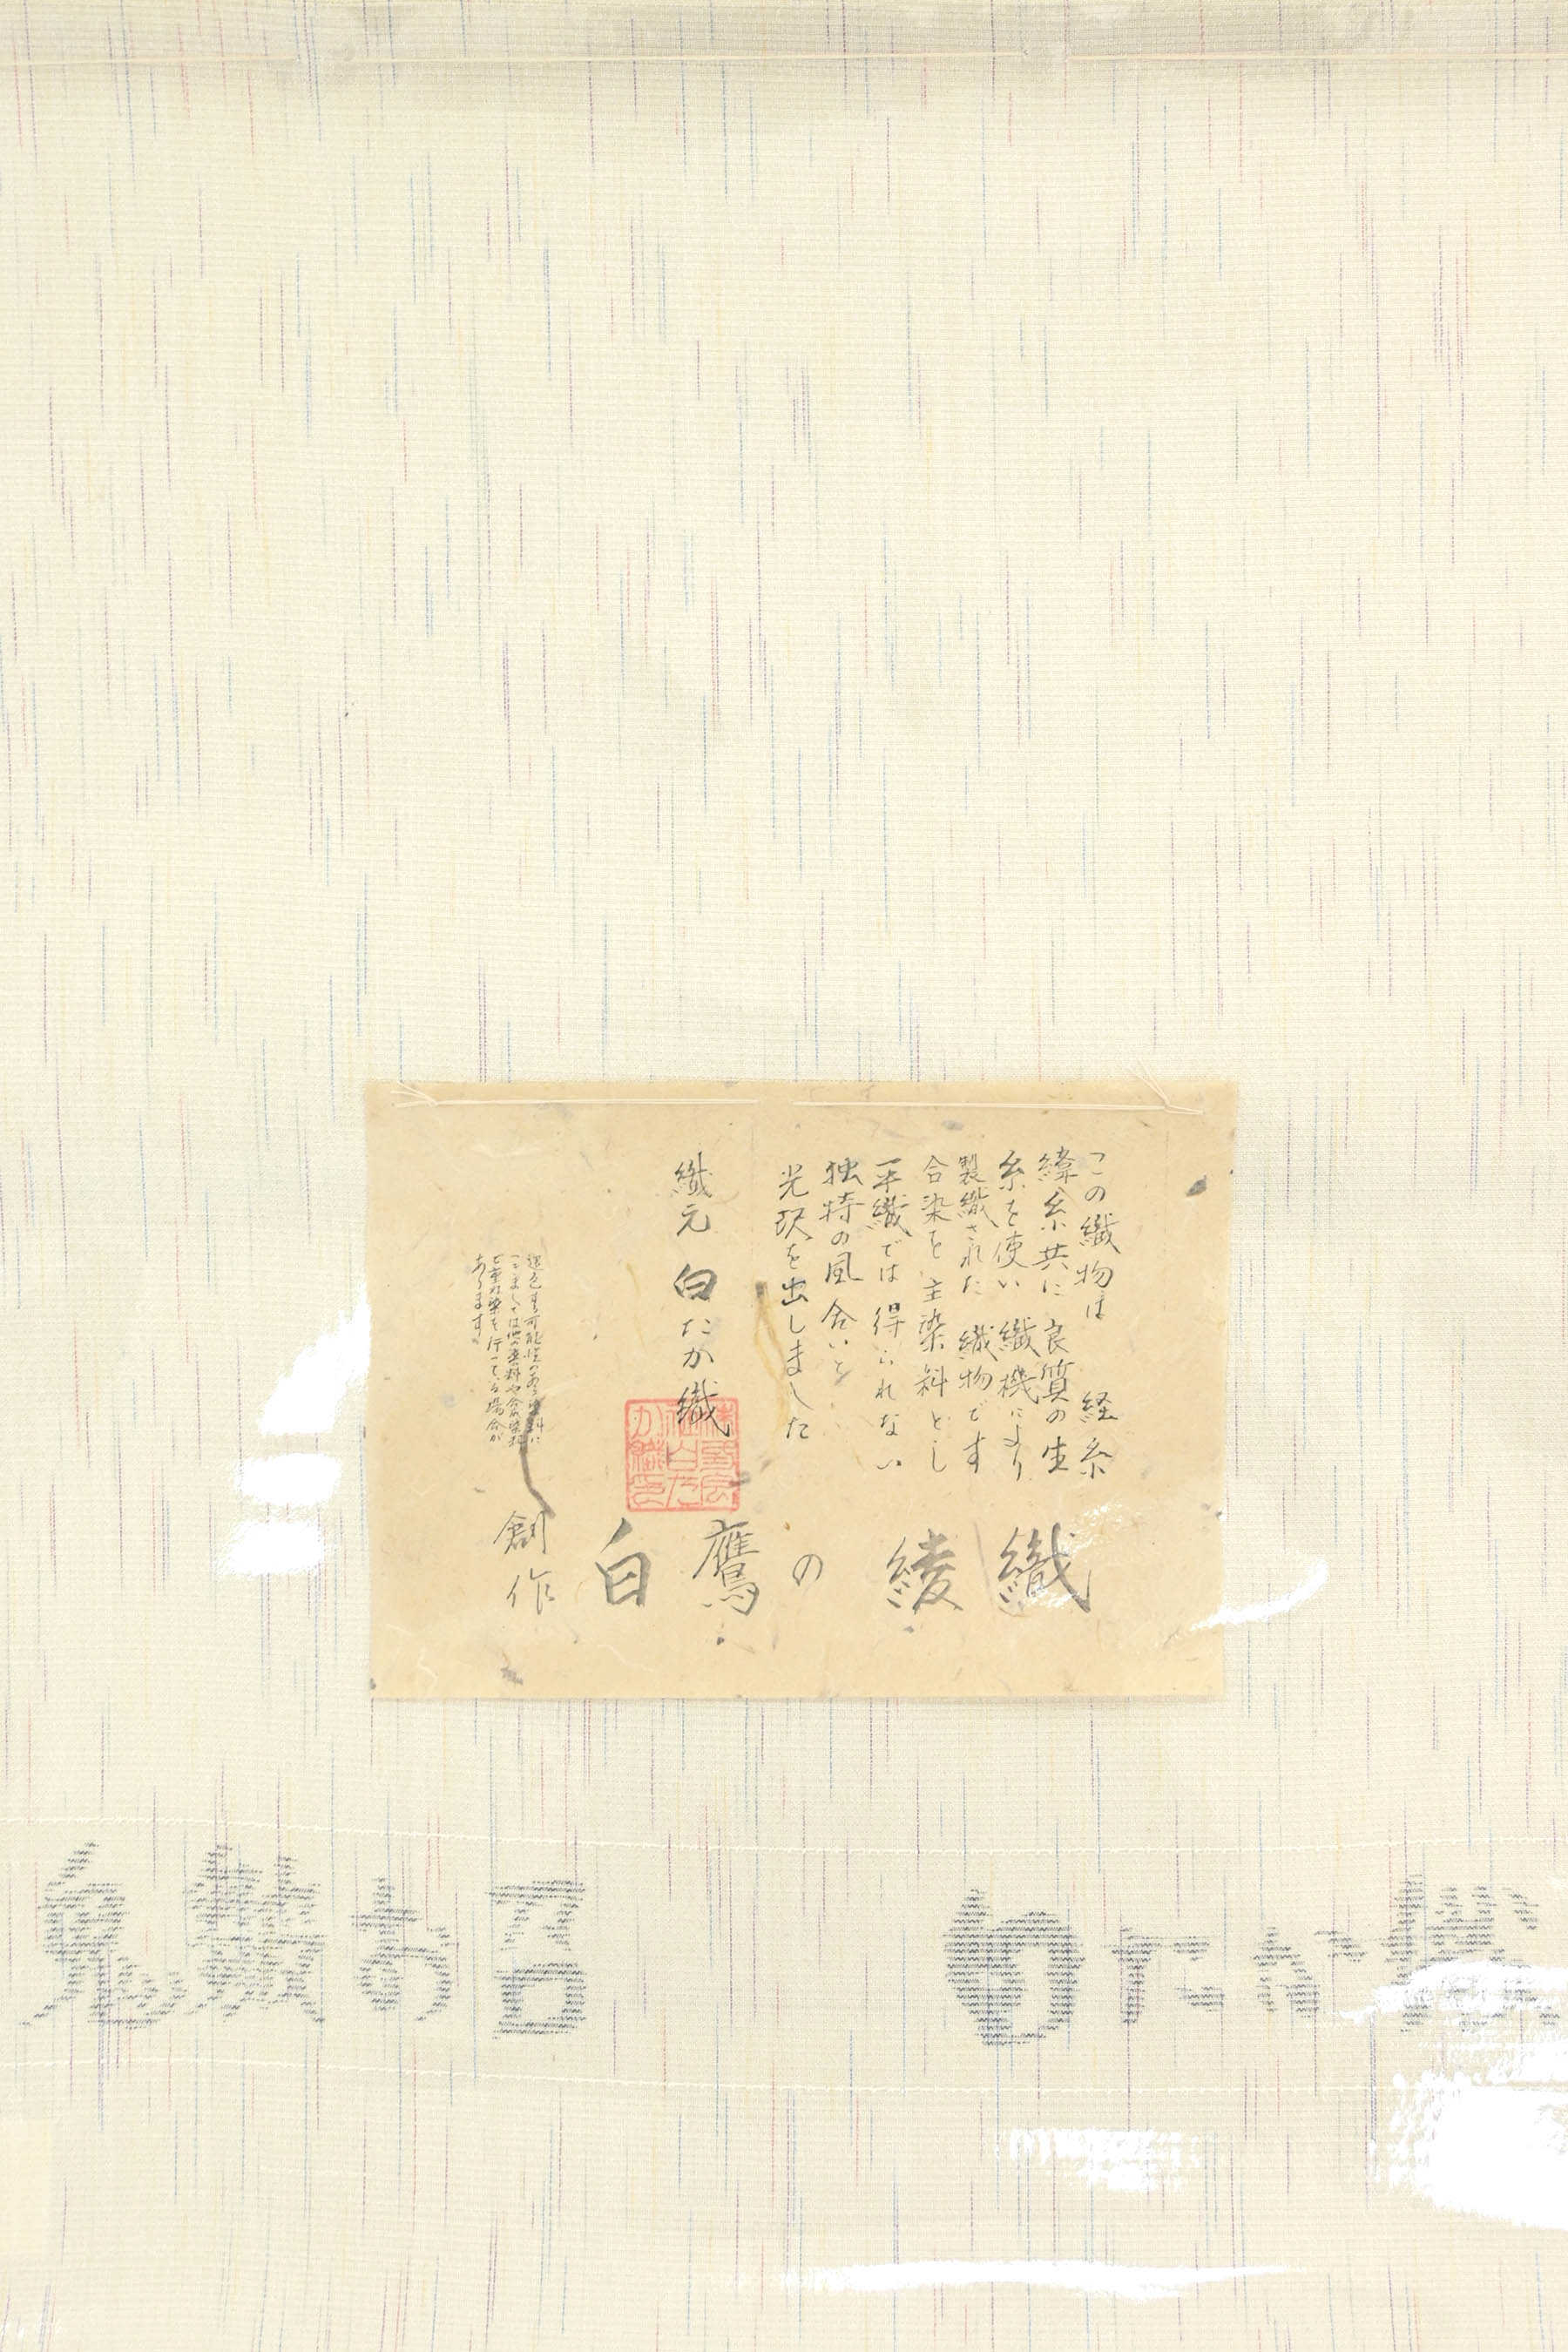 この織物は 経糸
緯糸共に良質の生
糸を使い織機により
製織された織物です
合染を主染料とし
平織では得られない
独特の風合いと
光沢を出しました
織元 白たか織
退色する可能性のある染料に
つきましては他の染料や合成染料
と重ね染を行っている場合が
あります。
創作
白鷹の綾織
白たか織